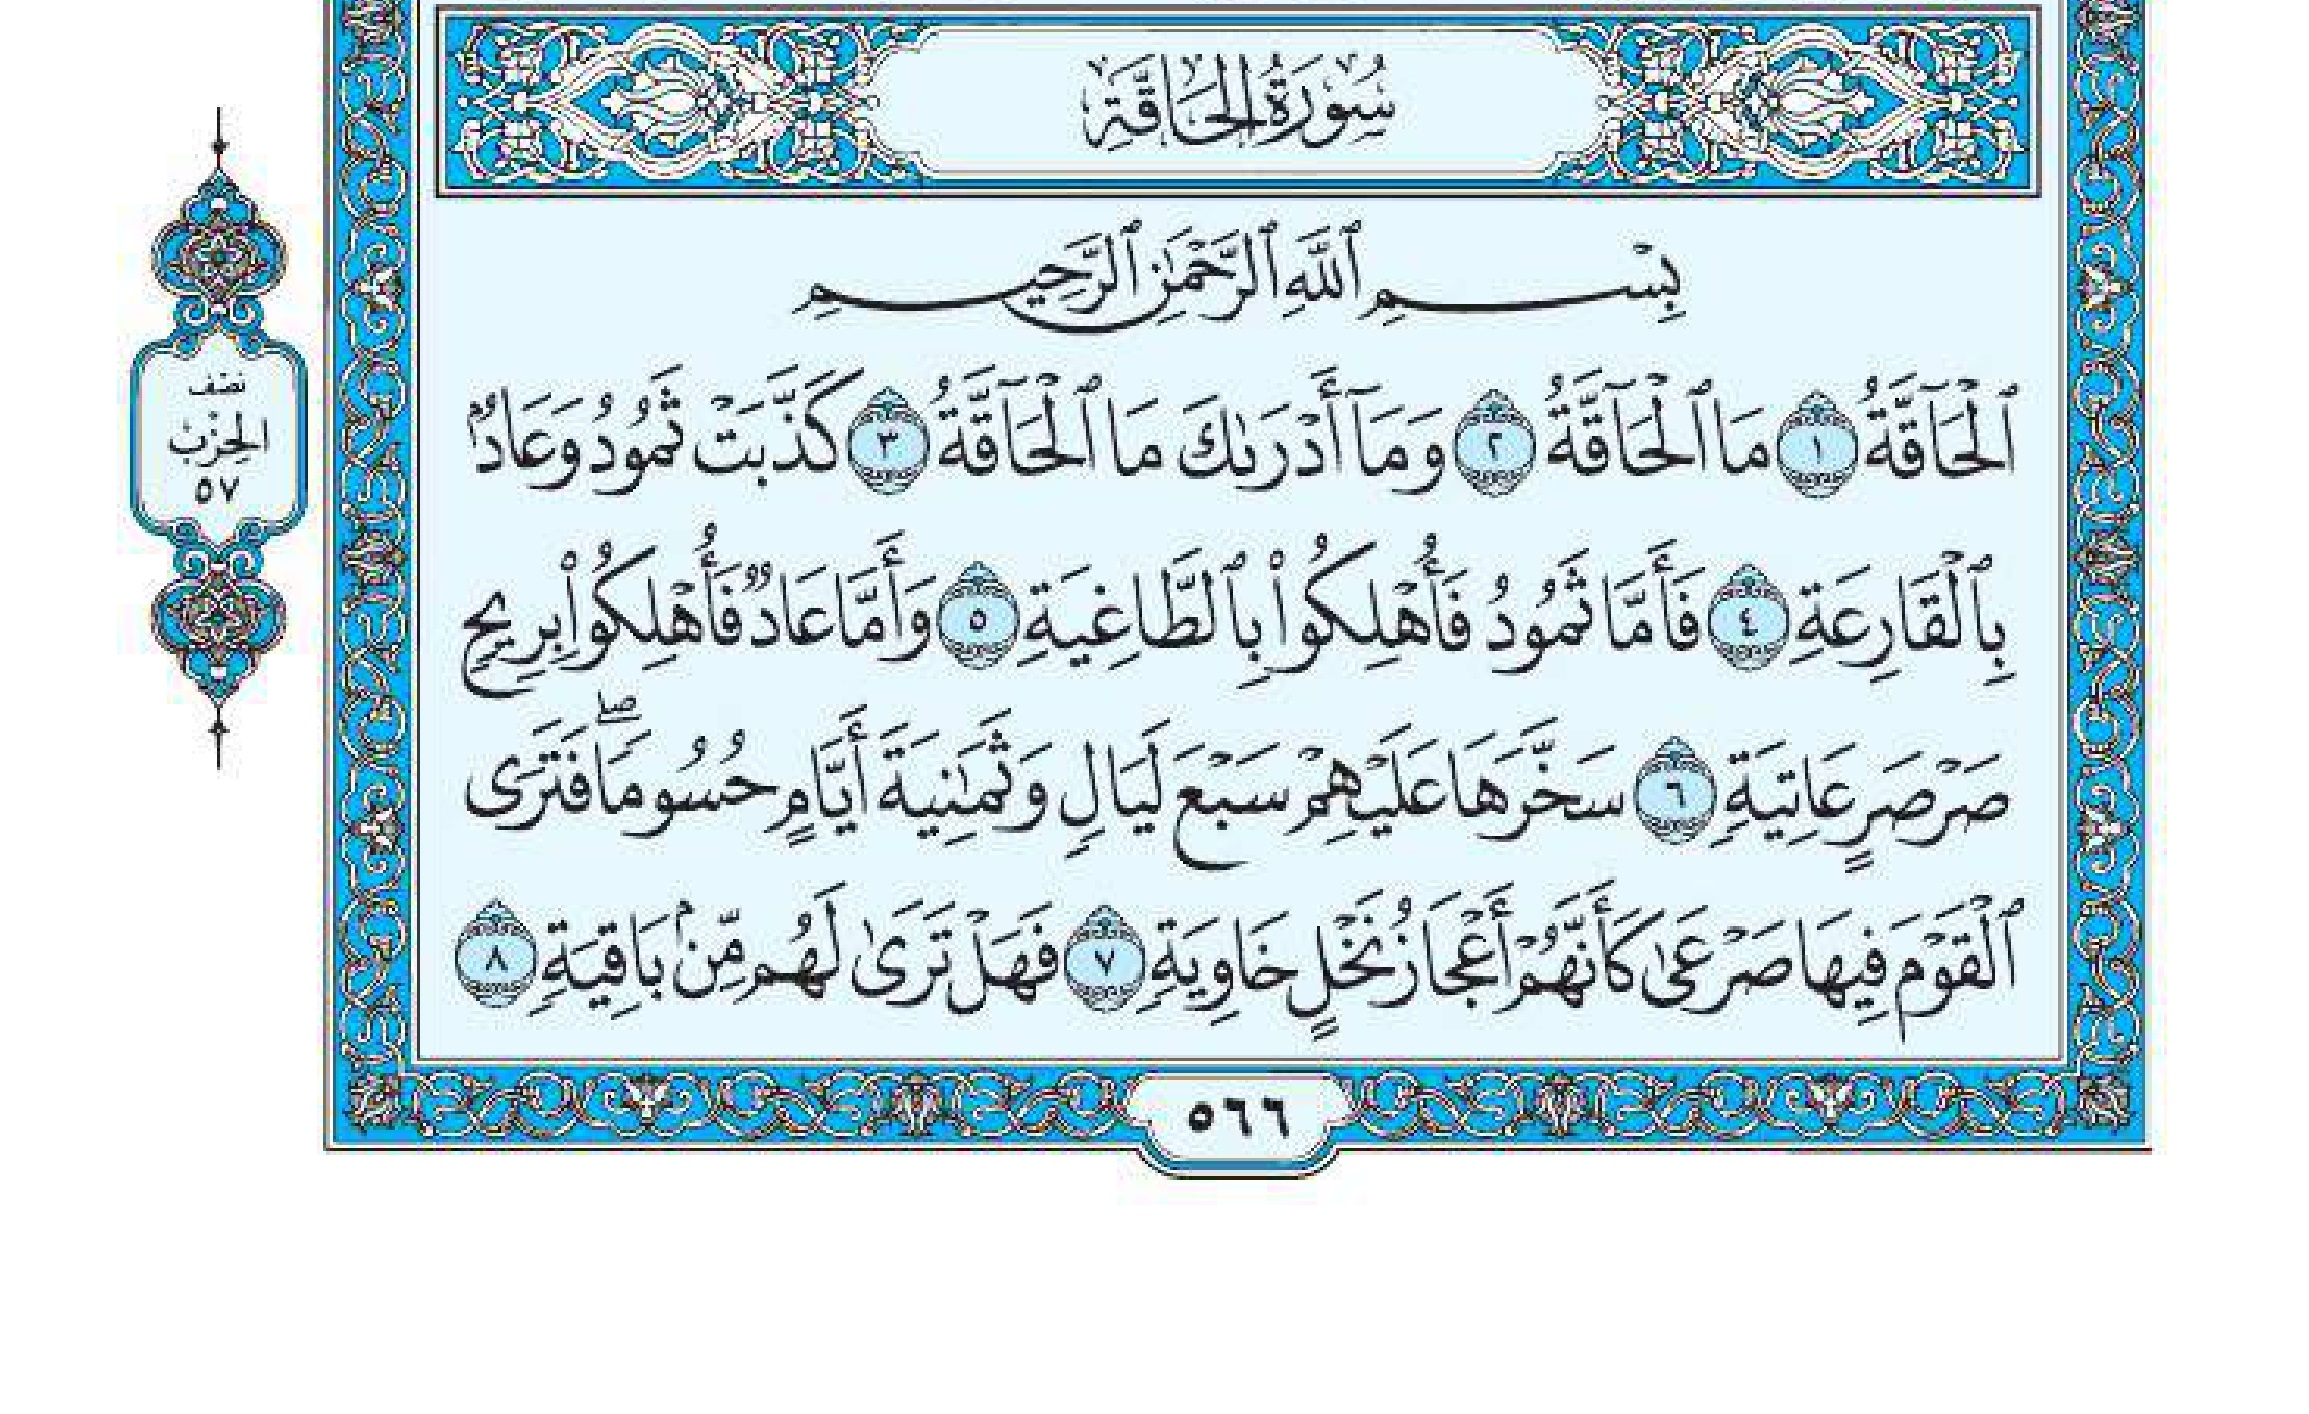 سُورَةُ الحَاقَّةِ
بِسْمِ ٱللَّهِ ٱلرَّحْمَٰنِ ٱلرَّحِيمِ
ٱلْحَآقَّةُ ١ مَا ٱلْحَآقَّةُ ٢ وَمَآ أَدْرَىٰكَ مَا ٱلْحَآقَّةُ ٣ كَذَّبَتْ ثَمُودُ وَعَادُۢ
بِٱلْقَارِعَةِ ٤ فَأَمَّا ثَمُودُ فَأُهْلِكُوا۟ بِٱلطَّاغِيَةِ ٥ وَأَمَّا عَادٌ فَأُهْلِكُوا۟ بِرِيحٍ
صَرْصَرٍ عَاتِيَةٍ ٦ سَخَّرَهَا عَلَيْهِمْ سَبْعَ لَيَالٍ وَثَمَٰنِيَةَ أَيَّامٍ حُسُومًاۖ فَتَرَى
ٱلْقَوْمَ فِيهَا صَرْعَىٰ كَأَنَّهُمْ أَعْجَازُ نَخْلٍ خَاوِيَةٍ ٧ فَهَلْ تَرَىٰ لَهُم مِّنۢ بَاقِيَةٍ ٨
نصْف
الحِزْبْ
٥٧
٥٦٦